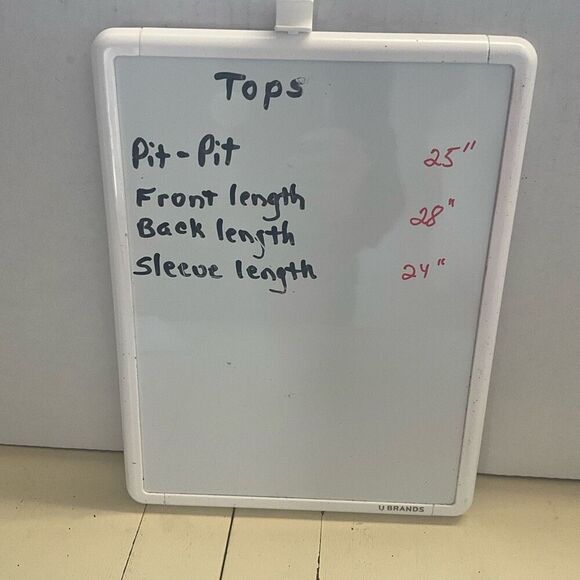 Tops
Pit-Pit 25"
Front length
28"
Back length
Sleeve length 24"
U BRANDS